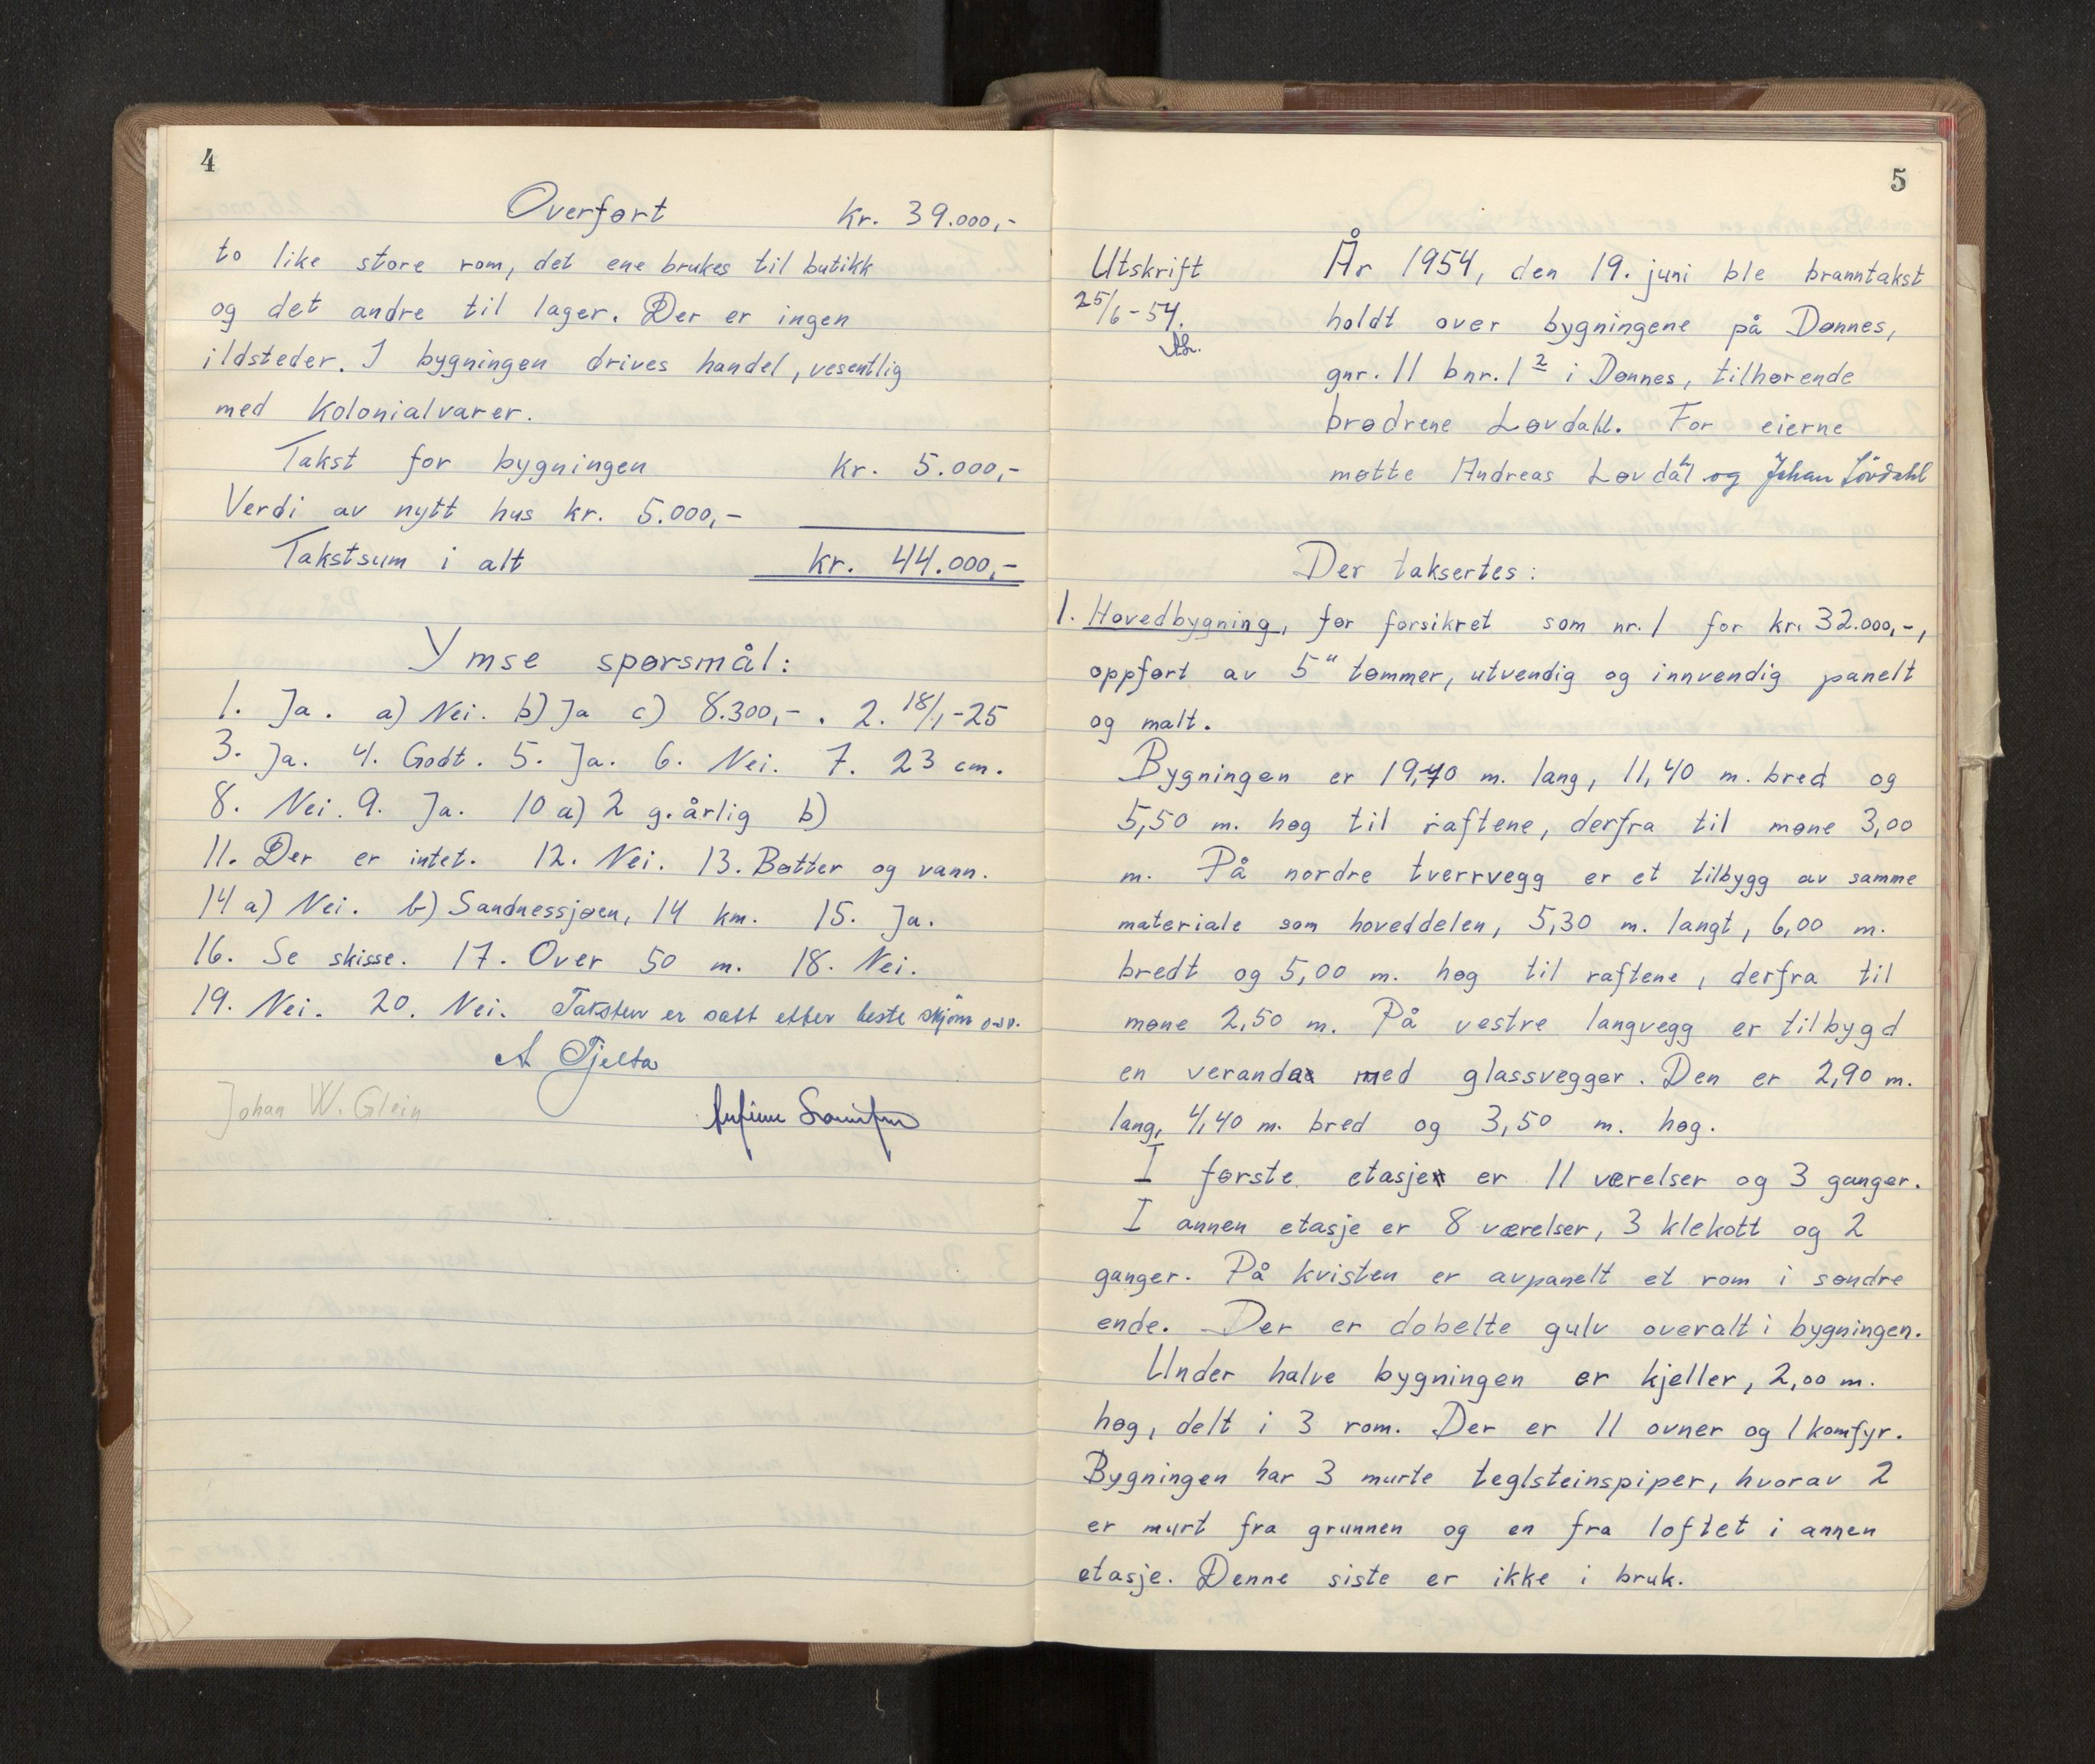 4
Overført kr. 39.000,-
to like store rom, det ene brukes til butikk
og det andre til lager. Der er ingen
ildsteder. I bygningen drives handel, vesentlig
med kolonialvarer.
Takst for bygningen kr. 5.000,-
Verdi av nytt hus kr. 5.000,-
Takstsum i alt kr. 44.000,-
Ymse spørsmål:
1. Ja. a) Nei. b) Ja c) 8.300,-. 2. 18/1-25
3. Ja. 4. Godt. 5. Ja. 6. Nei. 7. 23 cm.
8. Nei. 9. Ja. 10 a) 2 g. årlig b)
11. Der er intet. 12. Nei. 13. Bøtter og vann.
14 a) Nei. b) Sandnessjøen, 14 km. 15. Ja.
16. Se skisse. 17. Over 50 m. 18. Nei.
19. Nei. 20. Nei. Taksten er satt etter beste skjönn osv.
A Tjelta
Johan W. Glein
5
Utskrift
25/6-54.
År 1954, den 19. juni ble branntakst
holdt over bygningene på Dønnes,
gnr. 11 bnr. 1 2 i Dønnes, tilhørende
brødrene Løvdahl. For eierne
møtte Andreas Løvdahl og Johan Lövdahl
Der taksertes:
1. Hovedbygning, før forsikret som nr. 1 for kr. 32.000,-,
oppført av 5" tømmer, utvendig og innvendig panelt
og malt.
Bygningen er 19,40 m. lang, 11,40 m. bred og
5,50 m. høg til raftene, derfra til møne 3,00
m. På nordre tverrvegg er et tilbygg av samme
materiale som hoveddelen, 5,30 m. langt, 6,00 m.
bredt og 5,00 m. høg til raftene, derfra til
møne 2,50 m. På vestre langvegg er tilbygd
en veranda med glassvegger. Den er 2,90 m.
lang, 4,40 m. bred og 3,50 m. høg.
I første etasje er 11 værelser og 3 ganger.
I annen etasje er 8 værelser, 3 klekott og 2
ganger. På kvisten er avpanelt et rom i søndre
ende. Der er dobelte gulv overalt i bygningen.
Under halve bygningen er kjeller, 2,00 m.
høg, delt i 3 rom. Der er 11 ovner og 1 komfyr.
Bygningen har 3 murte teglsteinspiper, hvorav 2
er murt fra grunnen og en fra loftet i annen
etasje. Denne siste er ikke i bruk.